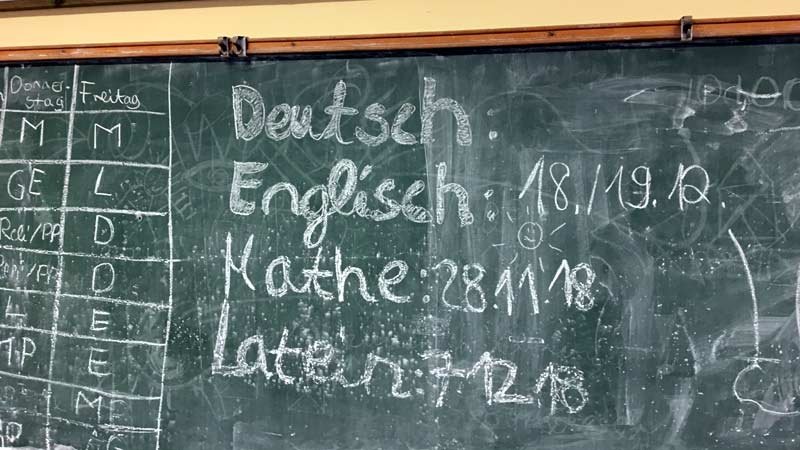 Donners-
tag Freitag
M M
GE L
Reli/PP D
Reli/PP D
L E
MP E
ME
Deutsch:
Englisch: 18./19.12.
Mathe: 28.11.18
Latein: 7 12 18